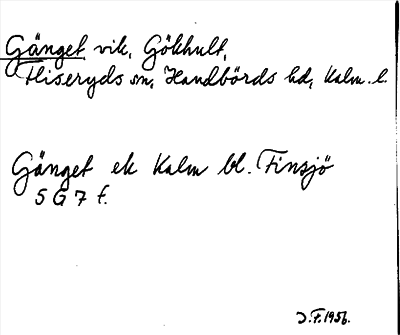 Gänget vik, Gökhult,
Fliseryds sn, Handbörds hd, Kalm. l.
Gänget ek Kalm bl. Finsjö
5 G 7 f.
J.F. 1956.